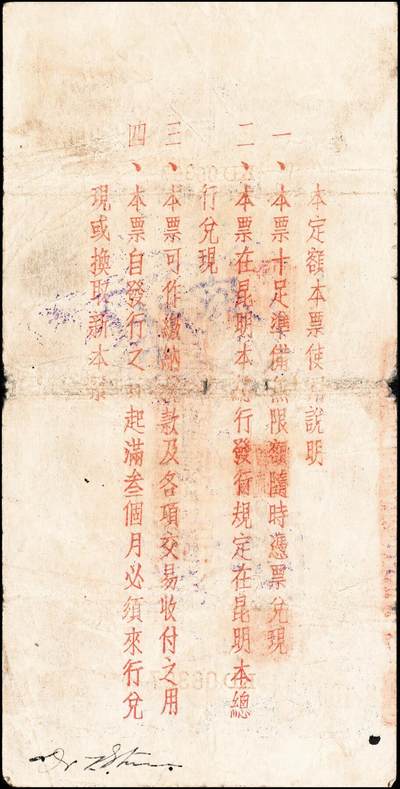 本定額本票使用說明
一、本票十足準備無限額隨時憑票兌現
二、本票在昆明本總行發行規定在昆明本總
行兌現
三、本票可作繳納稅款及各項交易收付之用
四、本票自發行之日起滿叁個月必須來行兌
現或換取新本票